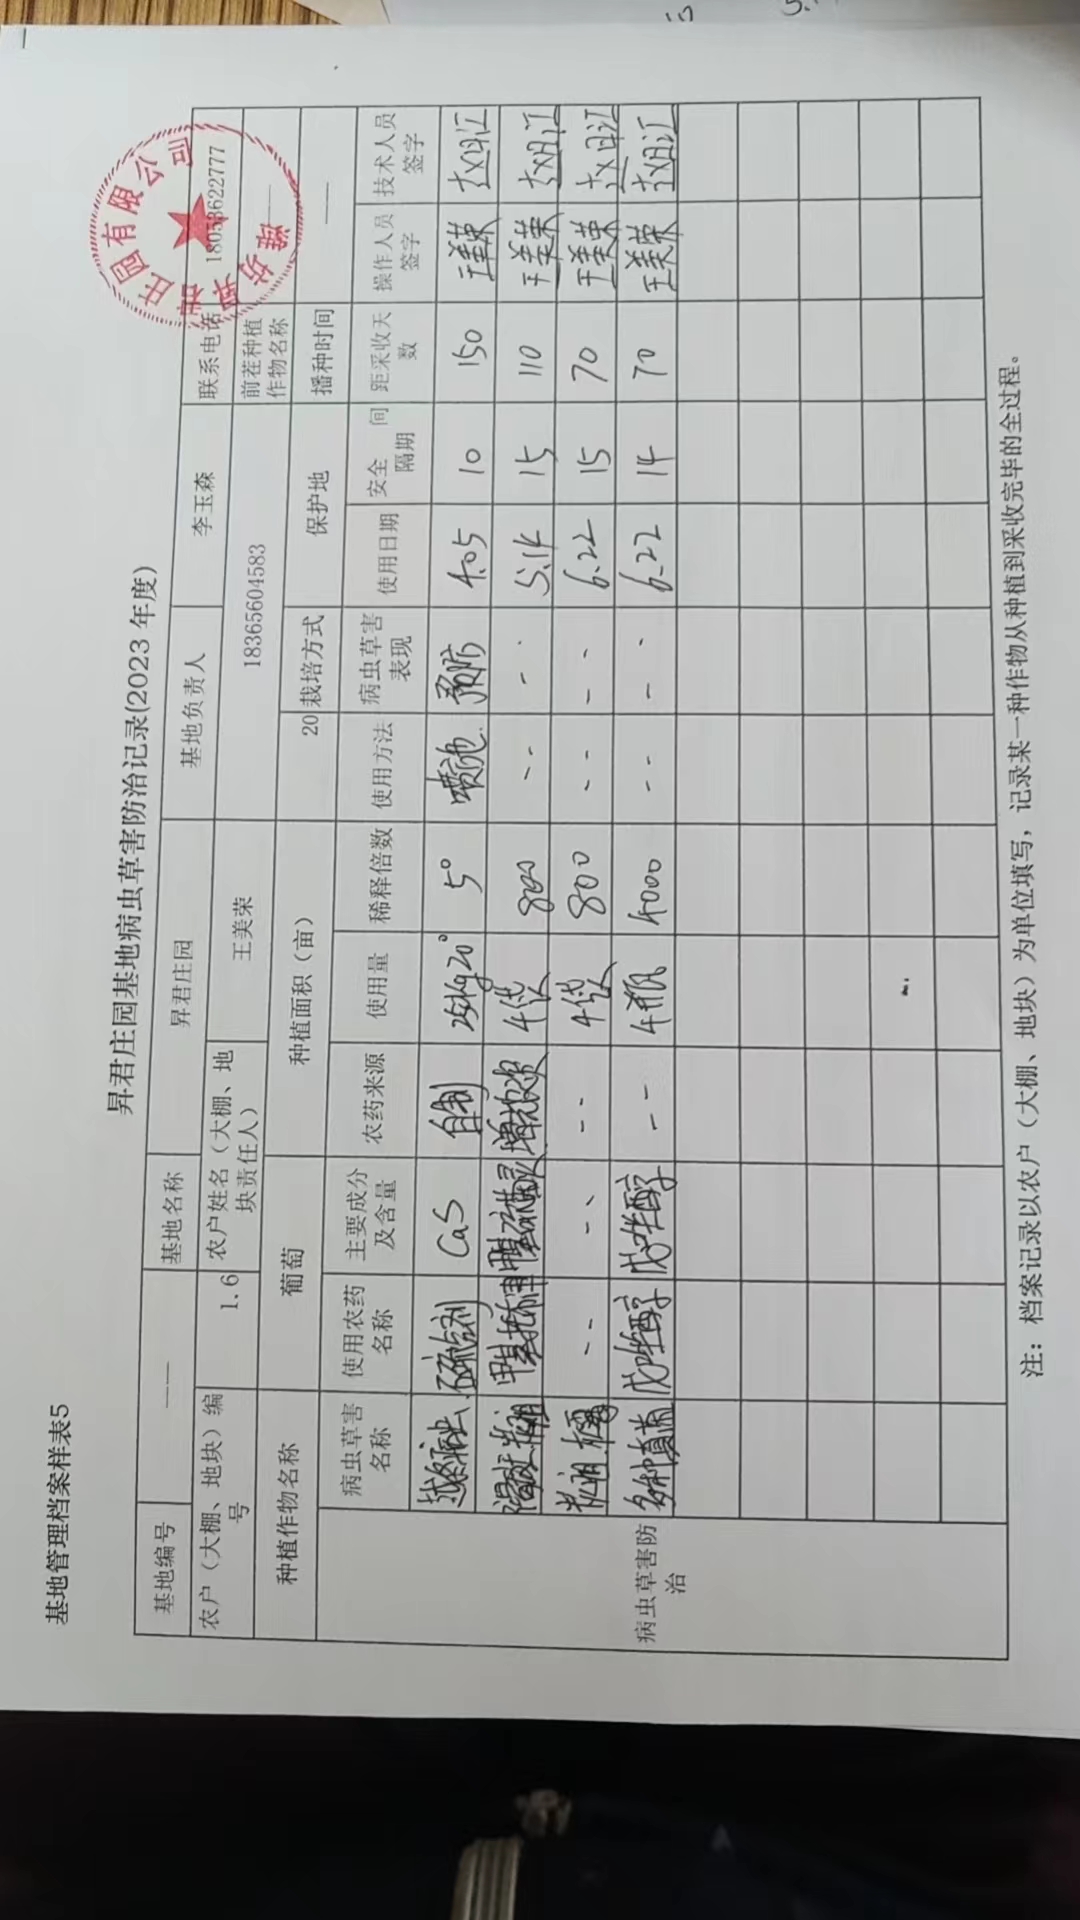 基地管理档案样表5
昇君庄园基地病虫草害防治记录(2023 年度)
基地编号 —— 基地名称 昇君庄园 基地负责人 李玉森 联系电话 18053622777
农户（大棚、地块）编号 1.6 农户姓名（大棚、地块责任人） 王美荣 18365604583 前茬种植作物名称 ——
种植作物名称 葡萄 种植面积（亩） 20 栽培方式 保护地 播种时间 ——
病虫草害防治
病虫草害名称 使用农药名称 主要成分及含量 农药来源 使用量 稀释倍数 使用方法 病虫草害表现 使用日期 安全间隔期 距采收天数 操作人员签字 技术人员签字
越冬病虫 石硫合剂 CaS 自制 25kg20° 5° 喷施 预防 4.05 10 150 王美荣
甲基托布津 4袋 800 -- -- 5.14 15 110 王美荣
-- -- -- 4袋 800 -- -- 6.22 15 70 王美荣
多种真菌 戊唑醇 戊唑醇 -- 4瓶 4000 -- -- 6.22 14 70 王美荣
注：档案记录以农户（大棚、地块）为单位填写，记录某一种作物从种植到采收完毕的全过程。
潍坊昇君庄园有限公司